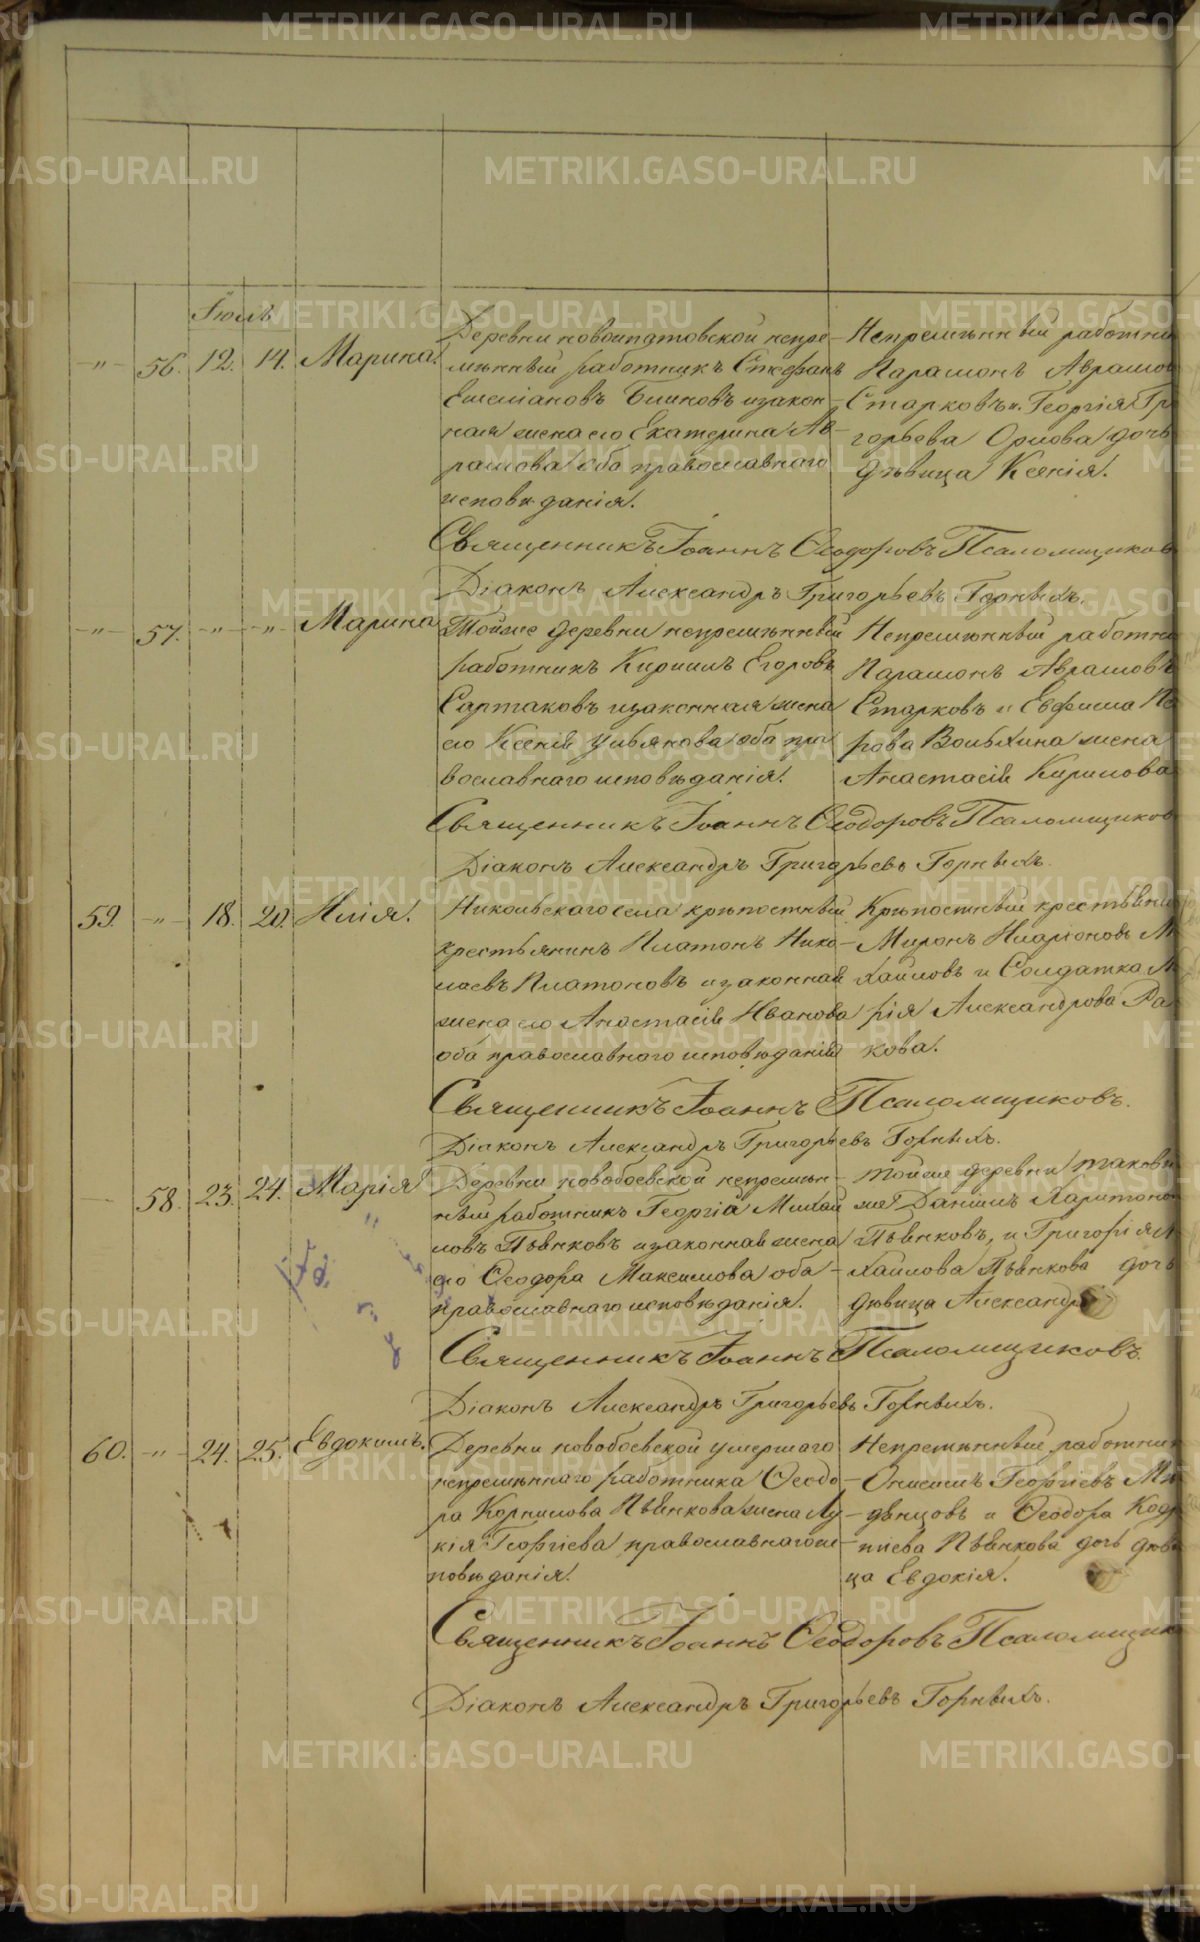 Іюль
-"- 56. 12. 14. Марина.
Деревни новоипатовской непре-
мѣнный работникъ Стефанъ
Емельяновъ Блиновъ и закон-
ная жена его Екатерина Ав-
рамова оба православнаго
исповѣданія.
Непремѣнный работни
Парамонъ Аврамов
Старковъ и Георгія Гри
горьева Орлова дочь
дѣвица Ксенія.
Священникъ Іоаннъ Ѳеодоровъ Псаломщиков
Діаконъ Александръ Григорьевъ Горныхъ.
-"- 57. -"- -"- Марина
Тойже деревни непремѣнный
работникъ Кирилъ Егоровъ
Сартаковъ и законная жена
его Ксенія Ульянова оба пра
вославнаго исповѣданія.
Непремѣнный работни
Парамонъ Аврамовъ
Старковъ и Евфима Пе
рова Волыхина жена
Анастасія Кирилова
Священникъ Іоаннъ Ѳеодоровъ Псаломщиков
Діаконъ Александръ Григорьевъ Горныхъ.
59. -"- 18. 20. Илія.
Никольскаго села крѣпостный
крестьянинъ Платонъ Нико-
лаевъ Платоновъ и законная
жена его Анастасія Иванова
оба православнаго исповѣданія
Крѣпостный крестьяни
Миронъ Иларіоновъ Ми
хайловъ и Солдатка Ма
рія Александрова Ра
кова.
Священникъ Іоаннъ Псаломщиковъ.
Діаконъ Александръ Григорьевъ Горныхъ.
58. 23. 24. Марія
Деревни новобоевской непремѣн-
ный работникъ Георгій Михай
ловъ Пьянковъ и законная жена
его Ѳеодора Максимова оба
православнаго исповѣданія.
тойже деревни таковы
же Данилъ Харитоно
Пьянковъ, и Григорія М
хайлова Пьянкова дочь
дѣвица Александра
Священникъ Іоаннъ Псаломщиковъ.
Діаконъ Александръ Григорьевъ Горныхъ.
60. -"- 24. 25. Евдокимъ.
Деревни новобоевской умершаго
непремѣннаго работника Ѳеодо-
ра Корнилова Пьянкова жена Лу-
кія Георгіева православнаго ис-
повѣданія.
Непремѣнный работни
Онисимъ Георгіевъ Ме
дѣнцовъ и Ѳеодора Кор
нилова Пьянкова дочь дѣви
ца Евдокія.
Священникъ Іоаннъ Ѳеодоровъ Псаломщик
Діаконъ Александръ Григорьевъ Горныхъ.
METRIKI.GASO-URAL.RU